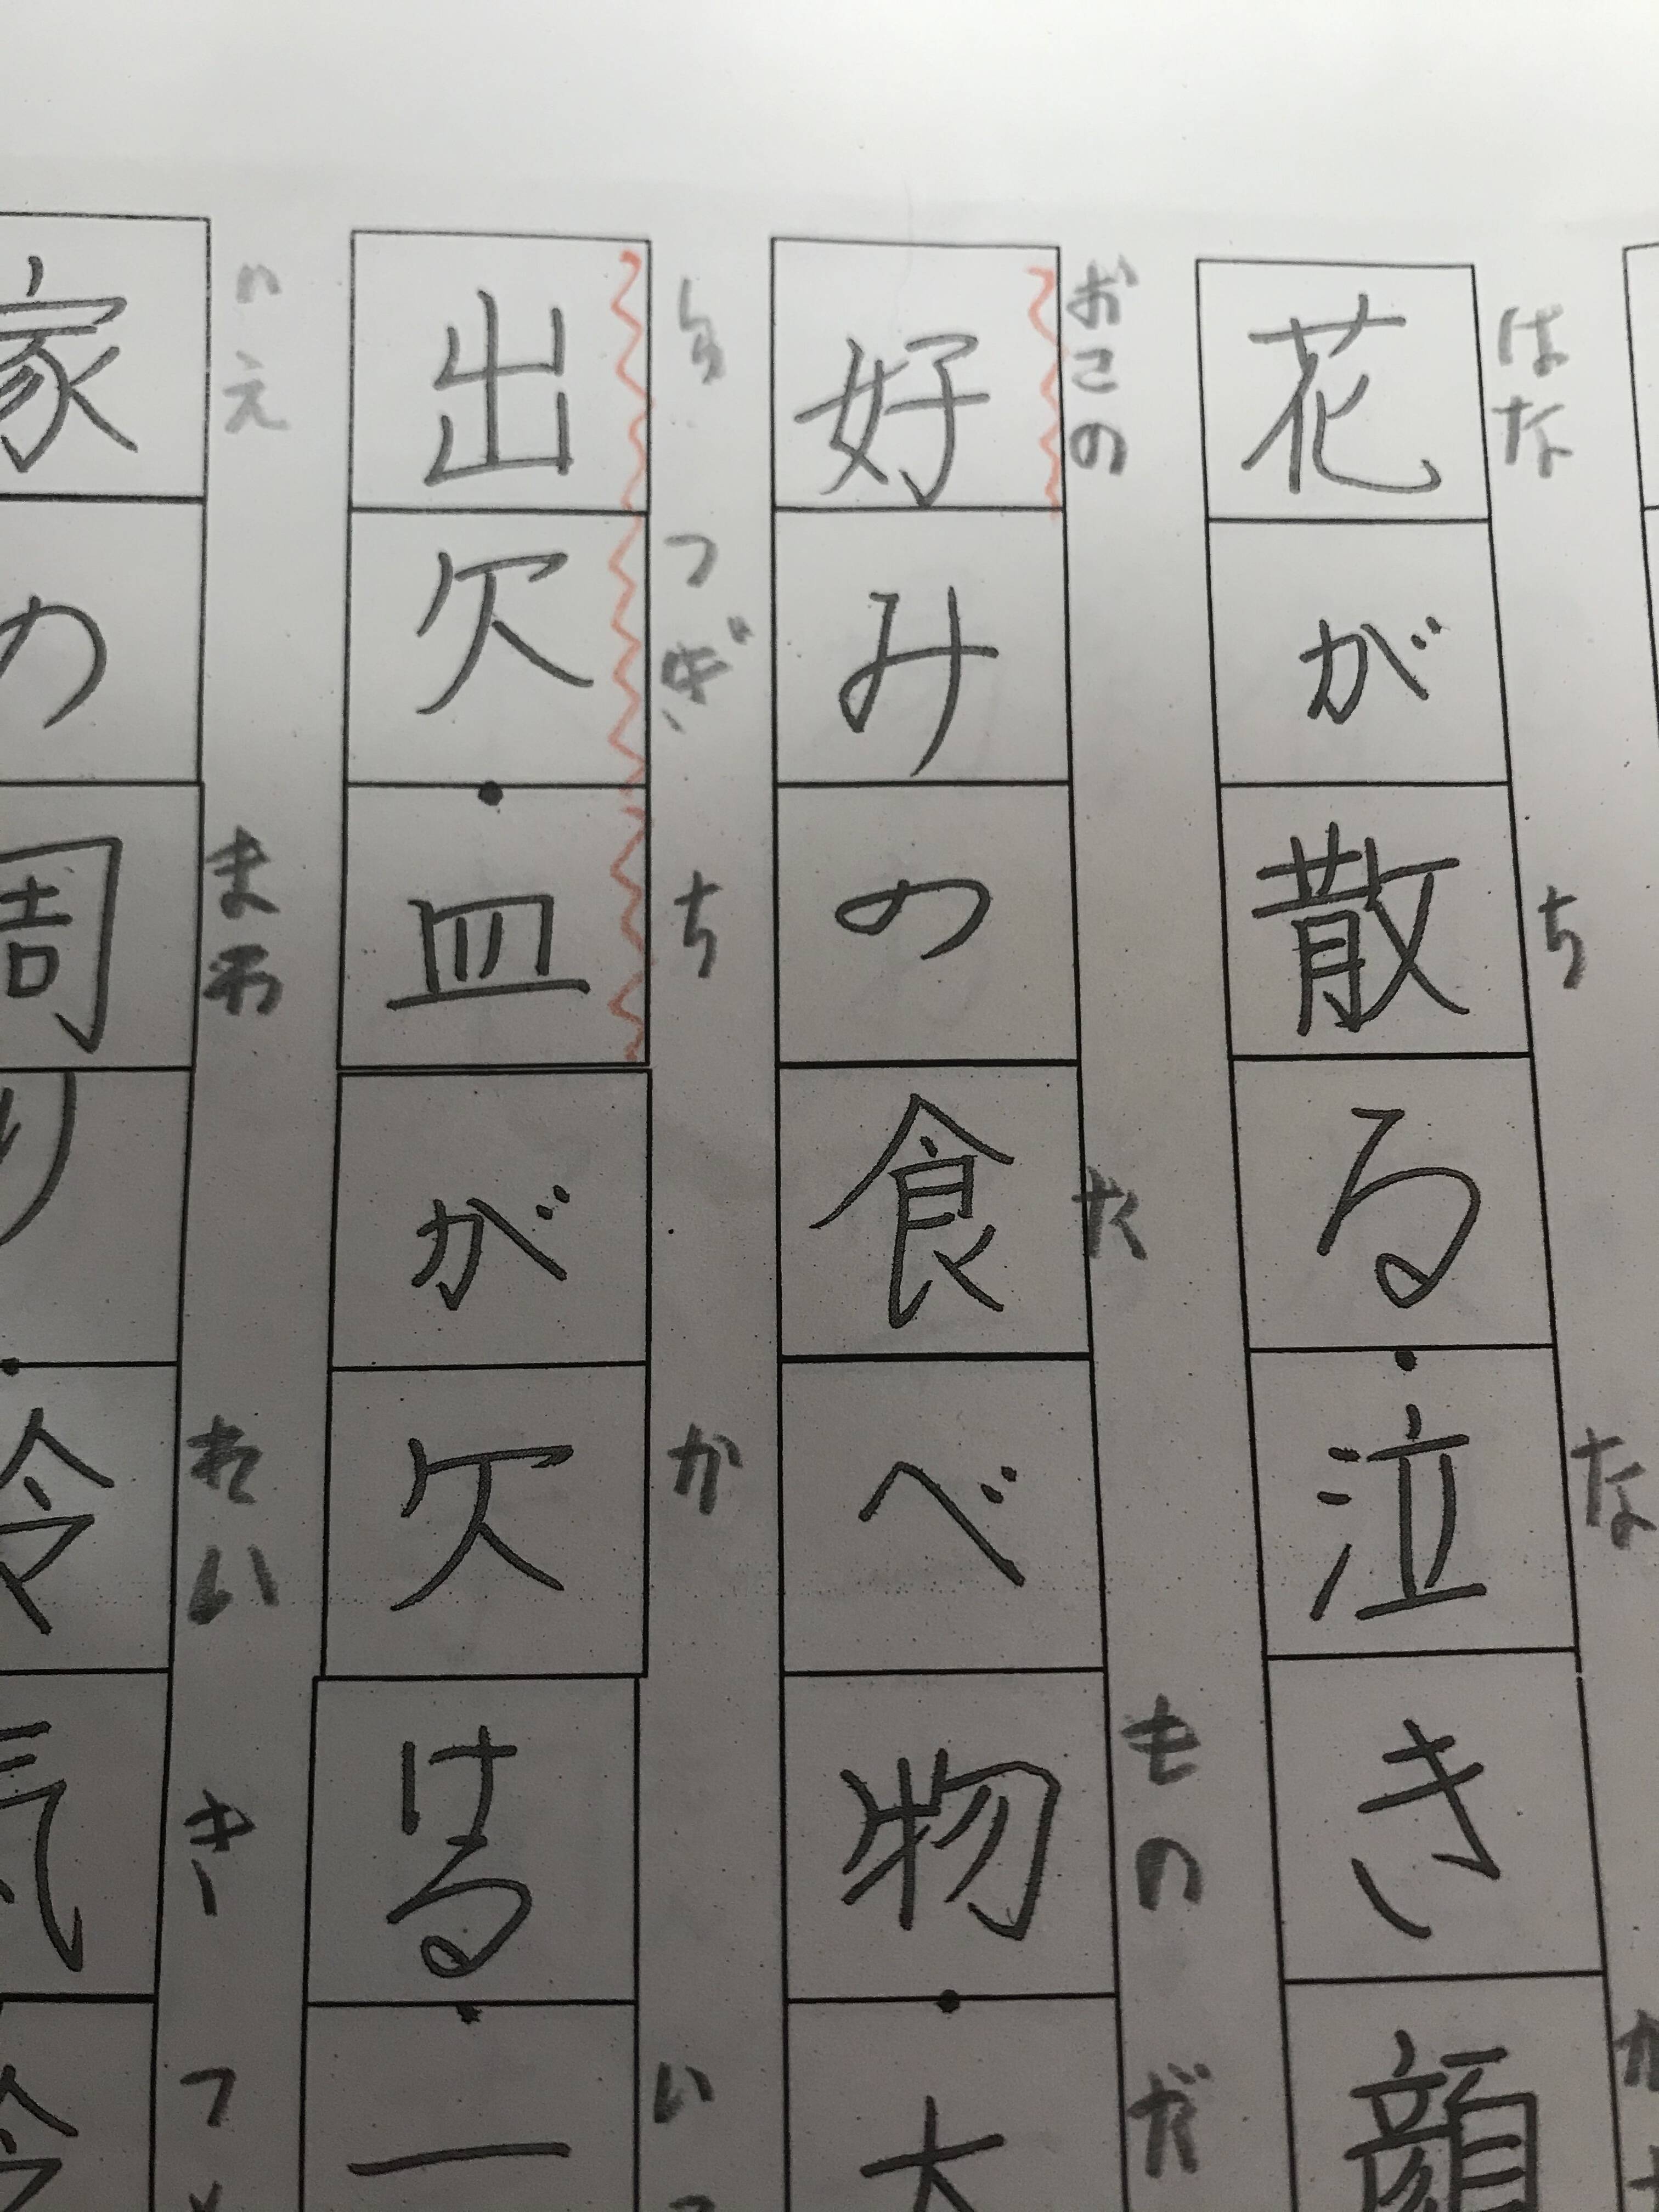 花が散る・泣き顔
はな ち な か
好みの食べ物・大
おこの た もの だ
出欠・皿が欠ける・一
しゅ つ ぎ ち か い つ
家の周り・冷気
いえ まわ れい き つ